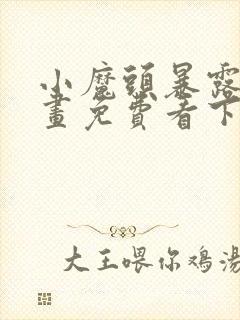 小魔頭暴露
畫免費看下
大王喂你鸡湯